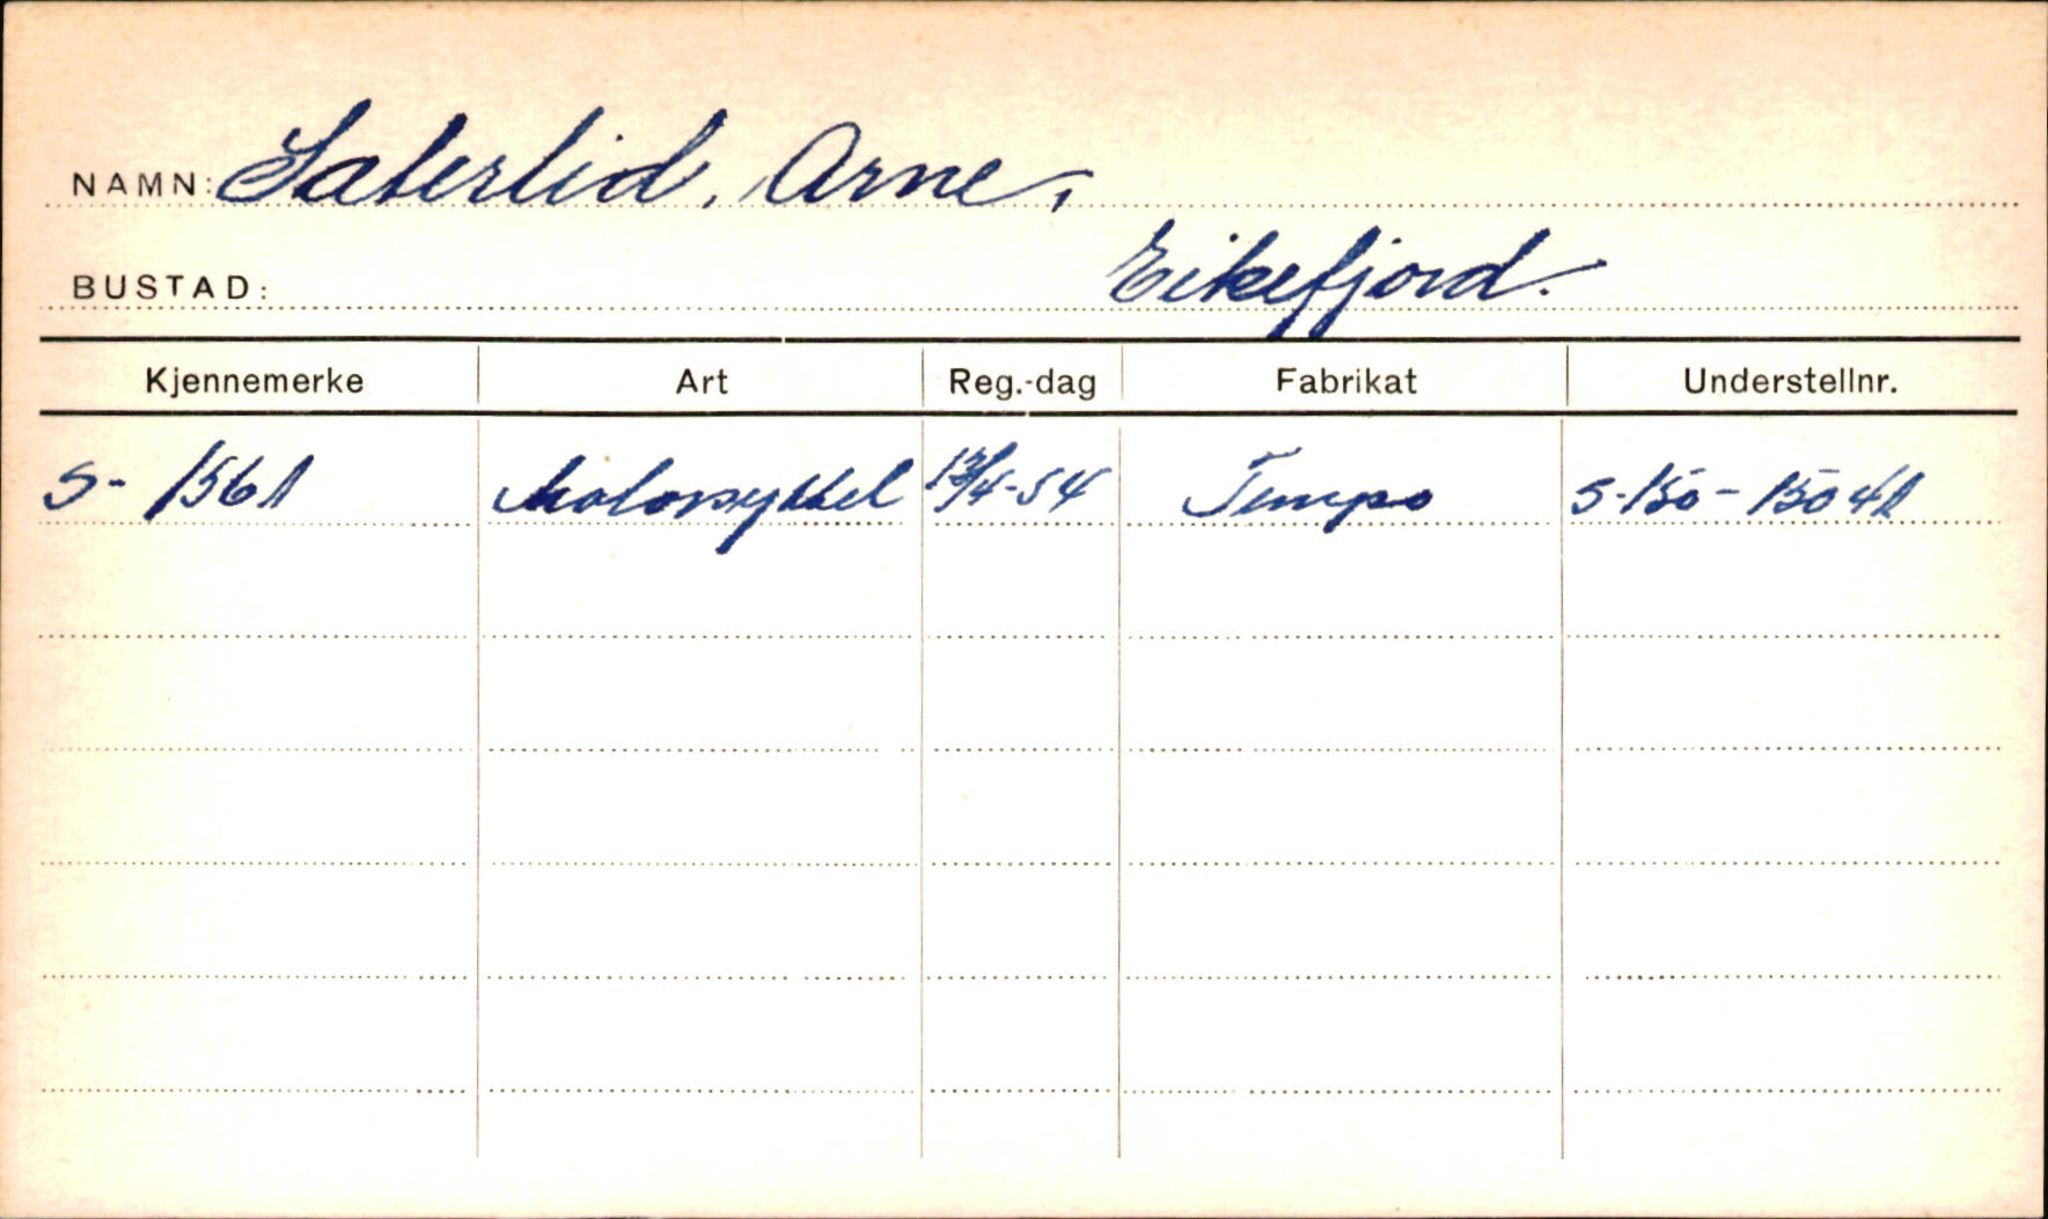 NAMN: Saterlid, Arne,
BUSTAD: Eikefjord.
Kjennemerke Art Reg.-dag Fabrikat Understellnr.
S- 1561 Motorsykkel 12/4-54 Tempo S-150-15041